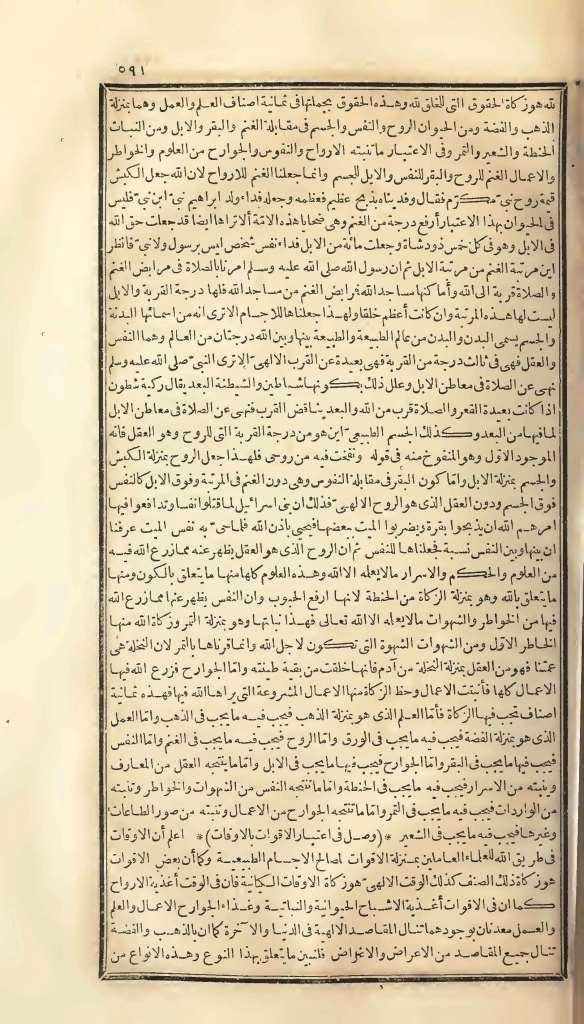 ٥٩١
لله هو زكاة الحقوق التى للخلق لله وهذه الحقوق بجملتها فى ثمانية اصناف العلم والعمل وهما بمنزلة
الذهب والفضة ومن الحيوان الروح والنفس والجسم فى مقابلة الغنم والبقر والابل ومن النبات
الحنطة والشعير والتمر وفى الاعتبار ما تنبته الارواح والنفوس والجوارح من العلوم والخواطر
والاعمال الغنم للروح والبقر للنفس والابل للجسم وانما جعلنا الغنم للارواح لان الله جعل الكبش
قيمة روح نبىّ مكرّم فقال وفديناه بذبح عظيم فعظمه وجعله فداء ولد ابراهيم نبىّ ابن نبىّ فليس
فى الحيوان بهذا الاعتبار أرفع درجة من الغنم وهى ضحايا هذه الامّة ألا تراها ايضا قد جعلت حق الله
فى الابل وهو فى كل خمس ذود شاة وجعلت مائة من الابل فداء نفس شخص ليس برسول ولا نبىّ فانظر
اين مرتبة الغنم من مرتبة الابل ثم ان رسول الله صلى الله عليه وسلم امرنا بالصلاة فى مرابض الغنم
والصلاة قربة الى الله وأماكنها مساجد الله فمرابض الغنم من مساجد الله فلها درجة القربة والابل
ليست لها هذه المرتبة وان كانت أعظم خلقا ولهذا جعلناها للاجسام الا ترى انه من اسمائها البدنة
والجسم يسمى البدن والبدن من عالم الطبيعة والطبيعة بينها وبين الله درجتان من العالم وهما النفس
والعقل فهى فى ثالث درجة من القربة فهى بعيدة عن القرب الالهىّ الا ترى النبىّ صلى الله عليه وسلم
نهى عن الصلاة فى معاطن الابل وعلل ذلك بكونها شياطين والشيطنة البعد يقال ركية شطون
اذا كانت بعيدة القعر والصلاة قرب من الله والبعد يناقض القرب فنهى عن الصلاة فى معاطن الابل
لما فيها من البعد وكذلك الجسم الطبيعىّ اين هو من درجة القربة التى للروح وهو العقل فانه
الموجود الاوّل وهو المنفوخ منه فى قوله ونفخت فيه من روحى فلهذا جعل الروح بمنزلة الكبش
والجسم بمنزلة الابل وامّا كون البقر فى مقابلة النفوس وهى دون الغنم فى المرتبة وفوق الابل كالنفس
فوق الجسم ودون العقل الذى هو الروح الالهىّ فذلك ان بنى اسرائيل لما قتلوا نفسا وتدافعوا فيها
امرهم الله ان يذبحوا بقرة ويضربوا الميت ببعضها فيحيى باذن الله فلما حيى به نفس الميت عرفنا
ان بينها وبين النفس نسبة فجعلناها للنفس ثم ان الروح الذى هو العقل يظهر عنه مما زرع الله فيه
من العلوم والحكم والاسرار ما لا يعلمه الا الله وهذه العلوم كلها منها ما يتعلق بالكون ومنها
ما يتعلق بالله وهو بمنزلة الزكاة من الحنطة لانها ارفع الحبوب وان النفس يظهر عنها مما زرع الله
فيها من الخواطر والشهوات ما لا يعلمه الا الله تعالى فهذا نباتها وهو بمنزلة التمر وزكاة الله منها
الخاطر الاوّل ومن الشهوات الشهوة التى تكون لاجل الله وانما قرناها بالتمر لان النخلة هى
عمتنا فهو من العقل بمنزلة النخلة من آدم فانها خلقت من بقية طينته وامّا الجوارح فزرع الله فيها
الاعمال كلها فأنبتت الاعمال وحظ الزكاة منها الاعمال المشروعة التى يراها الله فيها فهذه ثمانية
اصناف تجب فيها الزكاة فأمّا العلم الذى هو بمنزلة الذهب فيجب فيه ما يجب فى الذهب وامّا العمل
الذى هو بمنزلة الفضة فيجب فيه ما يجب فى الورق وامّا الروح فيجب فيه ما يجب فى الغنم وامّا النفس
فيجب فيها ما يجب فى البقر وامّا الجوارح فيجب فيها ما يجب فى الابل وامّا ما ينتجه العقل من المعارف
وينبته من الاسرار فيجب فيه ما يجب فى الحنطة وامّا ما تنتجه النفس من الشهوات والخواطر وتنبته
من الواردات فيجب فيه ما يجب فى التمر وامّا ما تنتجه الجوارح من الاعمال وتنبته من صور الطاعات
وغيرها فيجب فيه ما يجب فى الشعير * (وصل فى اعتبار الاقوات بالاوقات) * اعلم أن الاوقات
فى طريق الله للعلماء العاملين بمنزلة الاقوات لمصالح الاجسام الطبيعية وكما أن بعض الاقوات
هو زكاة ذلك الصنف كذلك الوقت الالهىّ هو زكاة الاوقات الكيانية فان فى الوقت أغذية الارواح
كما ان فى الاقوات أغذية الاشباح الحيوانية والنباتية وغذاء الجوارح الاعمال والعلم
والعمل معدنان بوجودهما تنال المقاصد الالهية فى الدنيا والآخرة كما ان بالذهب والفضة
تنال جميع المقاصد من الاعراض والاغراض فلنبين ما يتعلق بهذا النوع وهذه الانواع من